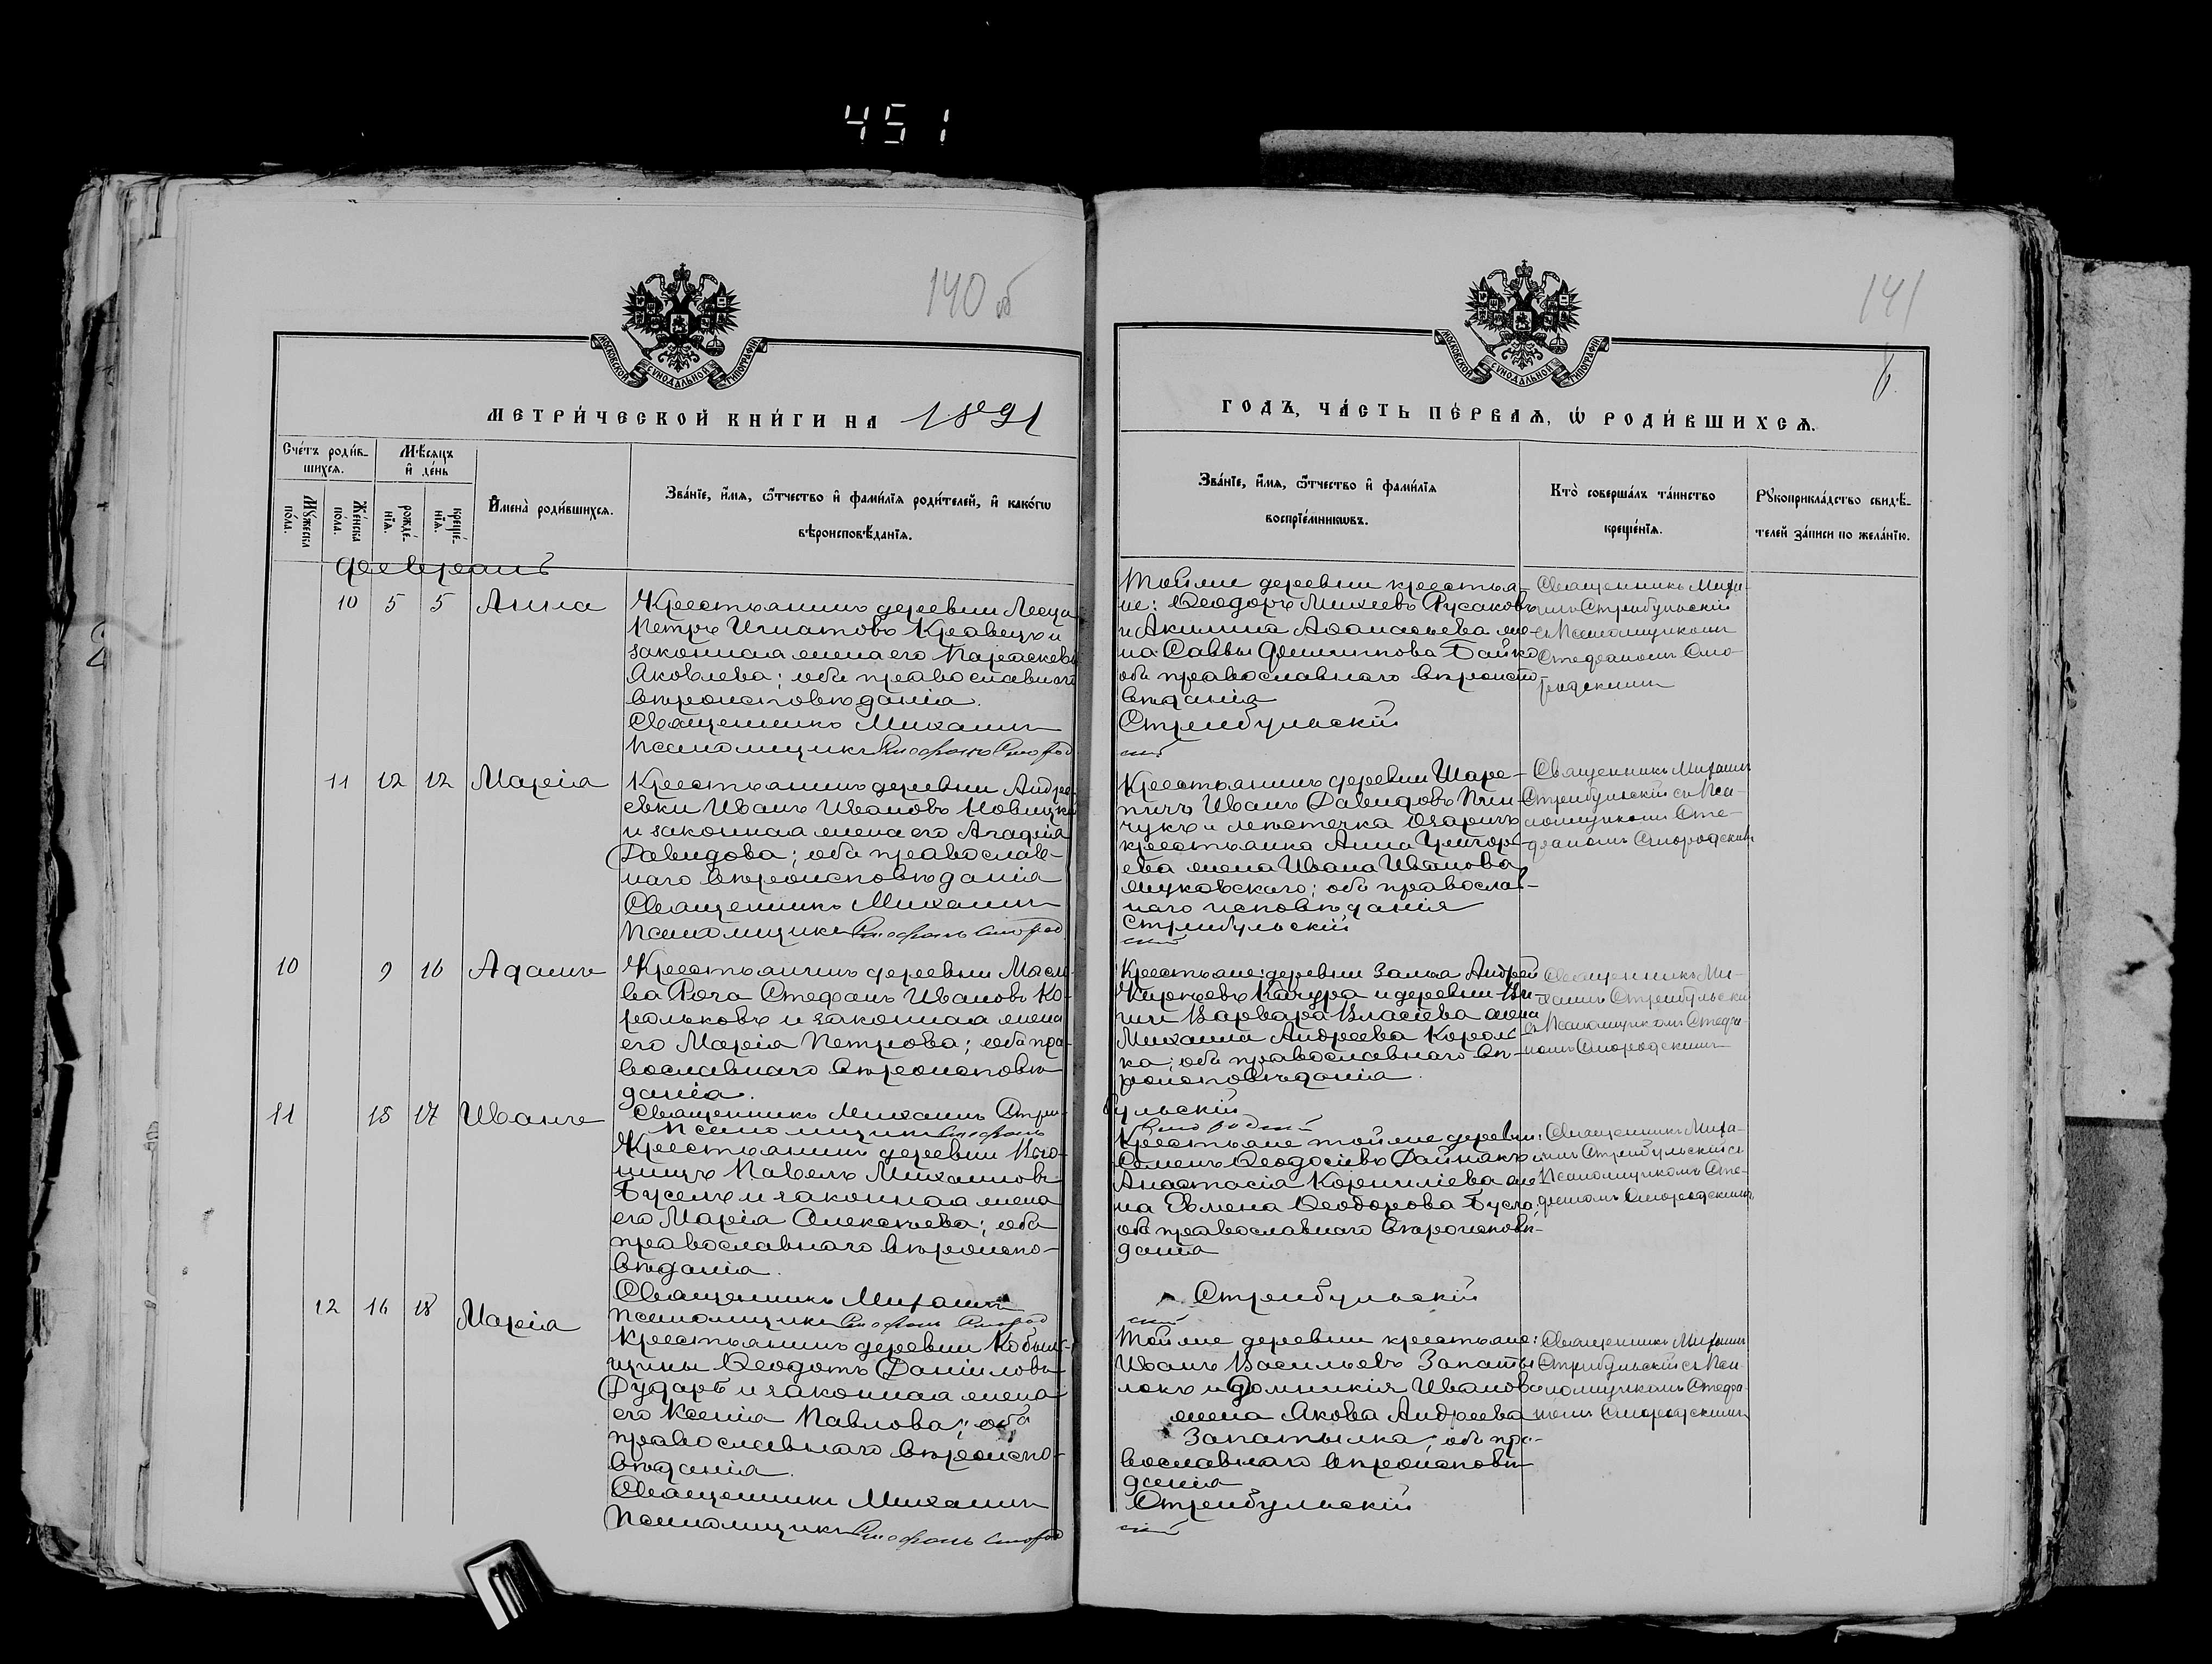 451
140 об
МОСКОВСКОЙ СѴНОДАЛЬНОЙ ТИПОГРАФІИ
МЕТРИ́ЧЕСКОЙ КНИ́ГИ НА 1891
Сче́тъ роди́в-
шихся.
Мѣ́сяцъ
и҆ де́нь
Мꙋ́жеска
по́ла.
Же́нска
по́ла.
рожде́-
нїѧ.
креще́-
нїѧ.
И҆мена̀ роди́вшихсѧ.
Зва́нїе, и҆́мѧ, ѻ҆́тчество и҆ фами́лїѧ роди́телей, и҆ како́гѡ
вѣроисповѣ́данїѧ.
Февраль
10 5 5 Анна
Крестьянинъ деревни
Петръ Игнатовъ Кравецъ и
законная жена его Параскева
Яковлева; оба православнаго
вѣроисповѣданія.
Священникъ Михаилъ
Псаломщикъ Стефанъ Смород
11 12 12 Марія
Крестьянинъ деревни Андре-
евки Иванъ Ивановъ Новицкій
и законная жена его Агафія
Давидова; оба православ-
наго вѣроисповѣданія
Священникъ Михаилъ
Псаломщикъ Стефанъ Смород
10 9 16 Адамъ
Крестьянинъ деревни Масле-
ва Рога Стефанъ Ивановъ Ко-
рольковъ и законная жена
его Марія Петрова; оба пра-
вославнаго вѣроисповѣ
данія.
Священникъ Михаилъ Стри-
Псаломщикъ Стефанъ
11 15 17 Иванъ
Крестьянинъ деревни
Павелъ Михаиловъ
Буселъ и законная жена
его Марія Алексѣева; оба
православнаго вѣроиспо-
вѣданія.
Священникъ Михаилъ
Псаломщикъ Стефанъ Смород
12 16 18 Марія
Крестьянинъ деревни Кобыль-
щины Ѳеодотъ Даніиловъ
Дударь и законная жена
его Ксенія Павлова; оба
православнаго вѣроиспо-
вѣданія.
Священникъ Михаилъ
Псаломщикъ Стефанъ Смород
141
6.
МОСКОВСКОЙ СѴНОДАЛЬНОЙ ТИПОГРАФІИ
ГОДЪ, ЧА́СТЬ ПЕ́РВАѦ, Ѡ҆ РОДИ́ВШИХСѦ.
Зва́нїе, и҆́мѧ, ѻ҆́тчество и҆ фами́лїѧ
воспрїе́мникѡвъ.
Кто̀ соверша́лъ та́инство
креще́нїѧ.
Рꙋкоприкла́дство свидѣ́-
телей за́писи по жела́нїю.
Той же деревни крестья-
не: Ѳеодоръ Михеевъ Русаковъ
и Акилина Аѳанасьева же-
на Саввы Байко
оба православнаго вѣроиспо-
вѣданія
Стрибульскій
скій
Священникъ Миха-
илъ Стрибульскій
съ Псаломщикомъ
Стефаномъ Смо-
родскимъ
Крестьянинъ деревни
Иванъ Давидовъ
и
крестьянка Анна Григорь-
ева жена Ивана Иванова
оба православ-
наго исповѣданія
Стрибульскій
скій
Священникъ Михаилъ
Стрибульскій съ Пса-
ломщикомъ Сте-
фаномъ Смородскимъ
Крестьяне: деревни Андрей
Качура и деревни
Варвара Власіева жена
Михаила Андреева Король-
ка; оба православнаго вѣ-
роисповѣданія.
бульскій
Смородскій
Священникъ Ми-
хаилъ Стрибульскій
съ Псаломщикомъ Стефа-
номъ Смородскимъ
Крестьяне той же деревни:
Семенъ Ѳеодосіевъ и
Анастасія Корниліева же-
на Евмена Ѳеодорова Бусла;
оба православнаго вѣроисповѣ-
данія
Стрибульскій
скій
Священникъ Миха-
илъ Стрибульскій съ
Псаломщикомъ Сте-
фаномъ Смородскимъ
Той же деревни крестьяне:
Иванъ Васильевъ Запаты-
локъ и Домникія Иванова
жена Якова Андреева
Запатылка; оба пра-
вославнаго вѣроисповѣ-
данія
Стрибульскій
скій
Священникъ Михаилъ
Стрибульскій съ Пса-
ломщикомъ Стефа-
номъ Смородскимъ